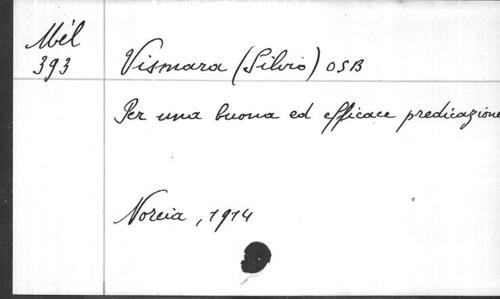 Mél
393
Vismara (Silvio) OSB
Per una buona ed efficace predicazione
Norcia, 1914